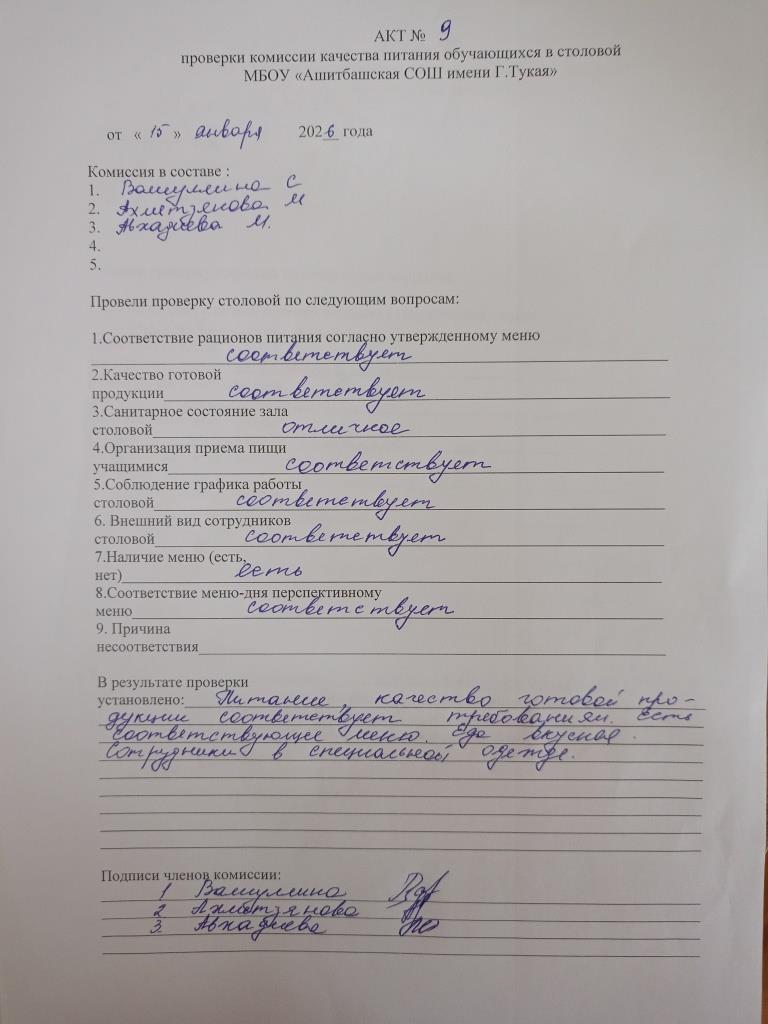 АКТ № 9
проверки комиссии качества питания обучающихся в столовой
МБОУ «Ашитбашская СОШ имени Г.Тукая»
от « 15 » января 2026 года
Комиссия в составе :
1. Вагиуллина С
2. Ахметзянова М
3. Авхадиева М.
4.
5.
Провели проверку столовой по следующим вопросам:
1.Соответствие рационов питания согласно утвержденному меню
соответствует
2.Качество готовой
продукции соответствует
3.Санитарное состояние зала
столовой отличное
4.Организация приема пищи
учащимися соответствует
5.Соблюдение графика работы
столовой соответствует
6. Внешний вид сотрудников
столовой соответствует
7.Наличие меню (есть,
нет) есть
8.Соответствие меню-дня перспективному
меню соответствует
9. Причина
несоответствия
В результате проверки
установлено: Питание, качество готовой про-
дукции соответствует требованиям. Есть
соответствующее меню. Еда вкусная.
Сотрудники в специальной одежде.
Подписи членов комиссии:
1 Вагиуллина
2 Ахметзянова
3. Авхадиева